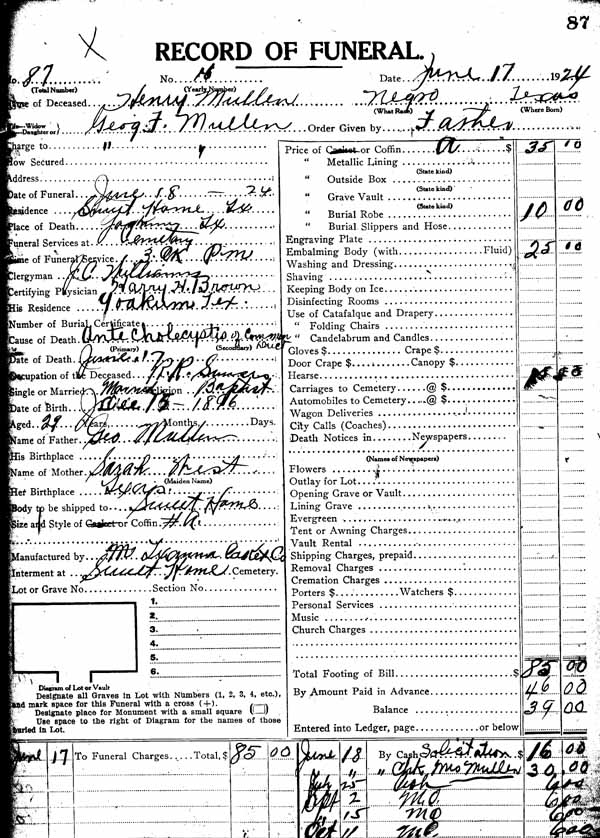 87
RECORD OF FUNERAL.
No. 87 No. 16 Date June 17 1924
(Total Number) (Yearly Number)
Name of Deceased Henry Mullen Negro Texas
(What Race) (Where Born)
Widow
Daughter or) Geog F. Mullen Order Given by Father
Charge to " "
How Secured
Address
Date of Funeral June 18 — 24
Residence Sweet Home Tx
Place of Death Yoakum Tx
Funeral Services at Cemetery
Time of Funeral Service 3. P.m
Clergyman J.C. Williams
Certifying Physician Harry H. Brown
His Residence Yoakum Tex.
Number of Burial Certificate
Cause of Death of Common
(Primary) (Secondary) Duct
Date of Death June
Occupation of the Deceased
Single or Married Married Religion Baptist
Date of Birth Dec 1896
Aged Years Months Days.
Name of Father Geo Mullen
His Birthplace
Name of Mother Sarah West
(Maiden Name)
Her Birthplace Texas
Body to be shipped to Sweet Home
Size and Style of Casket or Coffin
Manufactured by Casket Co
Interment at Sweet Home Cemetery.
Lot or Grave No. Section No.
1.
2.
3.
4.
5.
6.
Diagram of Lot or Vault
Designate all Graves in Lot with Numbers (1, 2, 3, 4, etc.),
and mark space for this Funeral with a cross (+).
Designate place for Monument with a small square
Use space to the right of Diagram for the names of those
buried in Lot.
Price of Casket or Coffin A $ 35 00
" Metallic Lining
(State kind)
" Outside Box
(State kind)
" Grave Vault
(State kind)
" Burial Robe 10 00
" Burial Slippers and Hose
Engraving Plate
Embalming Body (with Fluid) 25 00
Washing and Dressing
Shaving
Keeping Body on Ice
Disinfecting Rooms
Use of Catafalque and Drapery
" Folding Chairs
" Candelabrum and Candles
Gloves $ Crape $
Door Crape $ Canopy $
Hearse
Carriages to Cemetery @ $
Automobiles to Cemetery @ $
Wagon Deliveries
City Calls (Coaches)
Death Notices in Newspapers
(Names of Newspapers)
Flowers
Outlay for Lot
Opening Grave or Vault
Lining Grave
Evergreen
Tent or Awning Charges
Vault Rental
Shipping Charges, prepaid
Removal Charges
Cremation Charges
Porters $ Watchers $
Personal Services
Music
Church Charges
Total Footing of Bill $ 85 00
By Amount Paid in Advance 46 00
Balance 39 00
Entered into Ledger, page or below
June 17 To Funeral Charges Total, $ 85 00
June 18 By Cash Solicitation $ 16 00
" " Chk Mrs Mullen 30 00
July 25 Cash 6 00
Sept 2 M.O. 6 00
" 15 MO 6 00
Oct 11 M.O. 6 00